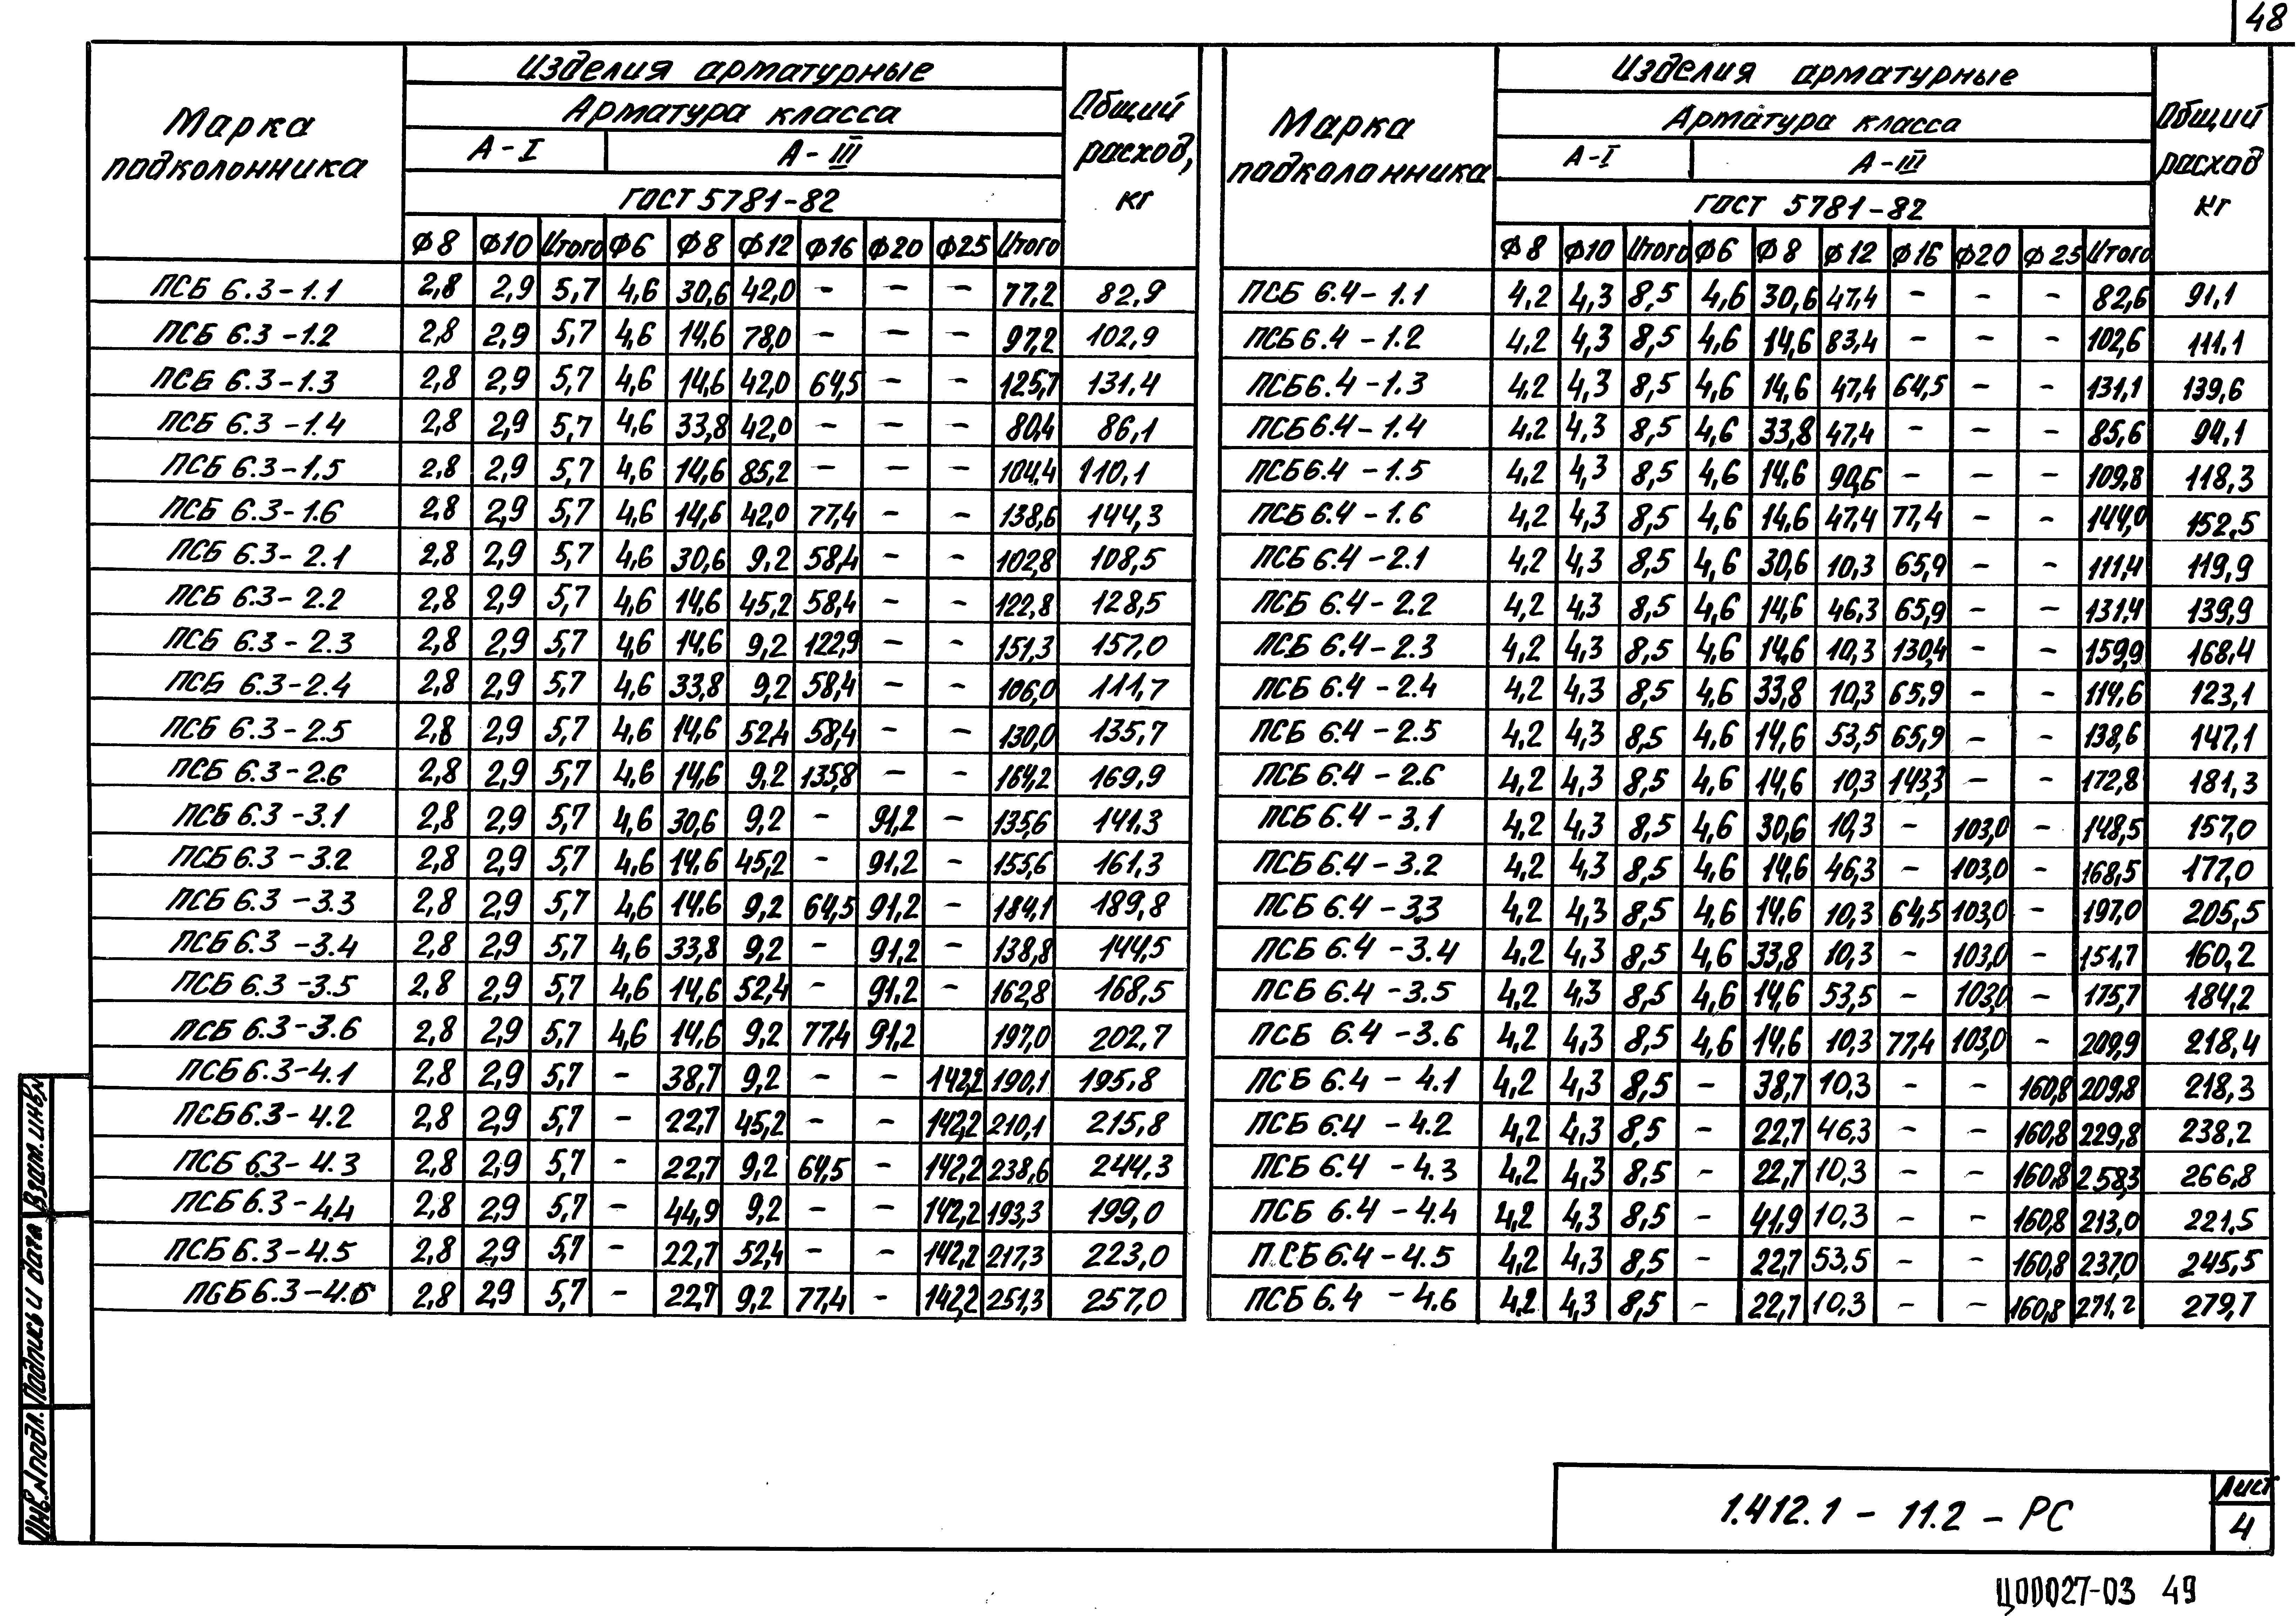 48
Изделия арматурные
Арматура класса
Марка подколонника
А-I А-III
Общий расход, кг
ГОСТ 5781-82
Ф8 Ф10 Итого Ф6 Ф8 Ф12 Ф16 Ф20 Ф25 Итого
ПСБ 6.3-1.1 2,8 2,9 5,7 4,6 30,6 42,0 - - - 77,2 82,9
ПСБ 6.3-1.2 2,8 2,9 5,7 4,6 14,6 78,0 - - - 97,2 102,9
ПСБ 6.3-1.3 2,8 2,9 5,7 4,6 14,6 42,0 64,5 - - 125,7 131,4
ПСБ 6.3-1.4 2,8 2,9 5,7 4,6 33,8 42,0 - - - 80,4 86,1
ПСБ 6.3-1.5 2,8 2,9 5,7 4,6 14,6 85,2 - - - 104,4 110,1
ПСБ 6.3-1.6 2,8 2,9 5,7 4,6 14,6 42,0 77,4 - - 138,6 144,3
ПСБ 6.3-2.1 2,8 2,9 5,7 4,6 30,6 9,2 58,4 - - 102,8 108,5
ПСБ 6.3-2.2 2,8 2,9 5,7 4,6 14,6 45,2 58,4 - - 122,8 128,5
ПСБ 6.3-2.3 2,8 2,9 5,7 4,6 14,6 9,2 122,9 - - 151,3 157,0
ПСБ 6.3-2.4 2,8 2,9 5,7 4,6 33,8 9,2 58,4 - - 106,0 111,7
ПСБ 6.3-2.5 2,8 2,9 5,7 4,6 14,6 52,4 58,4 - - 130,0 135,7
ПСБ 6.3-2.6 2,8 2,9 5,7 4,6 14,6 9,2 135,8 - - 164,2 169,9
ПСБ 6.3-3.1 2,8 2,9 5,7 4,6 30,6 9,2 - 91,2 - 135,6 141,3
ПСБ 6.3-3.2 2,8 2,9 5,7 4,6 14,6 45,2 - 91,2 - 155,6 161,3
ПСБ 6.3-3.3 2,8 2,9 5,7 4,6 14,6 9,2 64,5 91,2 - 184,1 189,8
ПСБ 6.3-3.4 2,8 2,9 5,7 4,6 33,8 9,2 - 91,2 - 138,8 144,5
ПСБ 6.3-3.5 2,8 2,9 5,7 4,6 14,6 52,4 - 91,2 - 162,8 168,5
ПСБ 6.3-3.6 2,8 2,9 5,7 4,6 14,6 9,2 77,4 91,2 197,0 202,7
ПСБ 6.3-4.1 2,8 2,9 5,7 - 38,7 9,2 - - 142,2 190,1 195,8
ПСБ 6.3-4.2 2,8 2,9 5,7 - 22,7 45,2 - - 142,2 210,1 215,8
ПСБ 6.3-4.3 2,8 2,9 5,7 - 22,7 9,2 64,5 - 142,2 238,6 244,3
ПСБ 6.3-4.4 2,8 2,9 5,7 - 44,9 9,2 - - 142,2 193,3 199,0
ПСБ 6.3-4.5 2,8 2,9 5,7 - 22,7 52,4 - - 142,2 217,3 223,0
ПСБ 6.3-4.6 2,8 2,9 5,7 - 22,7 9,2 77,4 - 142,2 251,3 257,0
Изделия арматурные
Арматура класса
Марка подколонника
А-I А-III
Общий расход кг
ГОСТ 5781-82
Ф8 Ф10 Итого Ф6 Ф8 Ф12 Ф16 Ф20 Ф25 Итого
ПСБ 6.4-1.1 4,2 4,3 8,5 4,6 30,6 47,4 - - - 82,6 91,1
ПСБ 6.4-1.2 4,2 4,3 8,5 4,6 14,6 83,4 - - - 102,6 111,1
ПСБ 6.4-1.3 4,2 4,3 8,5 4,6 14,6 47,4 64,5 - - 131,1 139,6
ПСБ 6.4-1.4 4,2 4,3 8,5 4,6 33,8 47,4 - - - 85,6 94,1
ПСБ 6.4-1.5 4,2 4,3 8,5 4,6 14,6 90,6 - - - 109,8 118,3
ПСБ 6.4-1.6 4,2 4,3 8,5 4,6 14,6 47,4 77,4 - - 144,0 152,5
ПСБ 6.4-2.1 4,2 4,3 8,5 4,6 30,6 10,3 65,9 - - 111,4 119,9
ПСБ 6.4-2.2 4,2 4,3 8,5 4,6 14,6 46,3 65,9 - - 131,4 139,9
ПСБ 6.4-2.3 4,2 4,3 8,5 4,6 14,6 10,3 130,4 - - 159,9 168,4
ПСБ 6.4-2.4 4,2 4,3 8,5 4,6 33,8 10,3 65,9 - - 114,6 123,1
ПСБ 6.4-2.5 4,2 4,3 8,5 4,6 14,6 53,5 65,9 - - 138,6 147,1
ПСБ 6.4-2.6 4,2 4,3 8,5 4,6 14,6 10,3 143,3 - - 172,8 181,3
ПСБ 6.4-3.1 4,2 4,3 8,5 4,6 30,6 10,3 - 103,0 - 148,5 157,0
ПСБ 6.4-3.2 4,2 4,3 8,5 4,6 14,6 46,3 - 103,0 - 168,5 177,0
ПСБ 6.4-3.3 4,2 4,3 8,5 4,6 14,6 10,3 64,5 103,0 - 197,0 205,5
ПСБ 6.4-3.4 4,2 4,3 8,5 4,6 33,8 10,3 - 103,0 - 151,7 160,2
ПСБ 6.4-3.5 4,2 4,3 8,5 4,6 14,6 53,5 - 103,0 - 175,7 184,2
ПСБ 6.4-3.6 4,2 4,3 8,5 4,6 14,6 10,3 77,4 103,0 - 209,9 218,4
ПСБ 6.4-4.1 4,2 4,3 8,5 - 38,7 10,3 - - 160,8 209,8 218,3
ПСБ 6.4-4.2 4,2 4,3 8,5 - 22,7 46,3 - - 160,8 229,8 238,2
ПСБ 6.4-4.3 4,2 4,3 8,5 - 22,7 10,3 - - 160,8 258,3 266,8
ПСБ 6.4-4.4 4,2 4,3 8,5 - 41,9 10,3 - - 160,8 213,0 221,5
ПСБ 6.4-4.5 4,2 4,3 8,5 - 22,7 53,5 - - 160,8 237,0 245,5
ПСБ 6.4-4.6 4,2 4,3 8,5 - 22,7 10,3 - - 160,8 271,2 279,7
Взам.инв.N
Подпись и дата
Инв.N подл.
1.412.1-11.2-РС
Лист
4
Ц00027-03 49